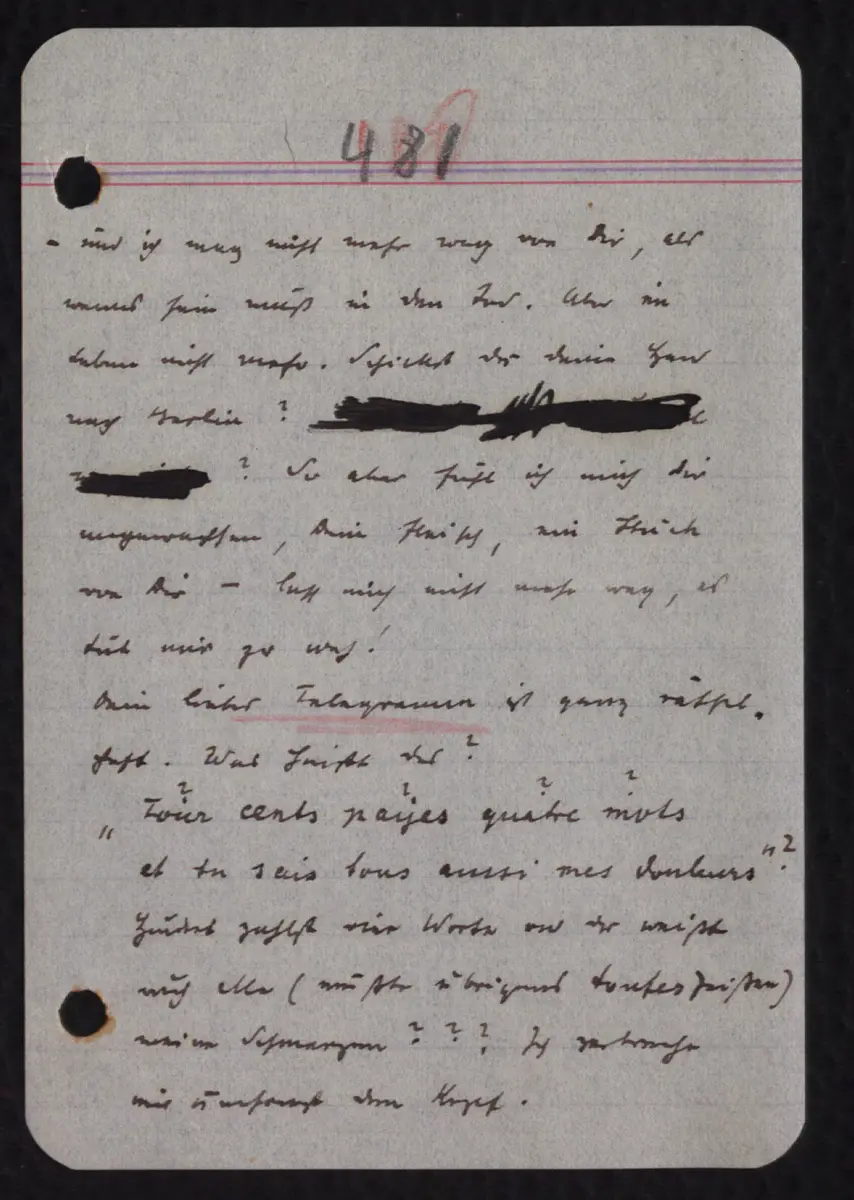 481
– und ich mag nicht mehr weg von Dir, als
wenns sein muß in den Tod. Aber im
Leben nicht mehr. Schickst du deine Frau
nach Berlin ?
? So aber fühl ich mich Dir
angewachsen, Dein Fleisch, ein Stück
von Dir – lass mich nicht mehr weg, es
tut mir zu weh!
Dein liebes Telegramm ist ganz rätsel-
haft. Was heißt das ?
„ Tour cents payes quatre mots
et tu sais tous aussi mes douleurs" ?
zahlst vier Worte und du weißt
auch alle (müßte übrigens toutes heißen)
meine Schmerzen ? ? ? Ich zerbreche
mir umsonst den Kopf.